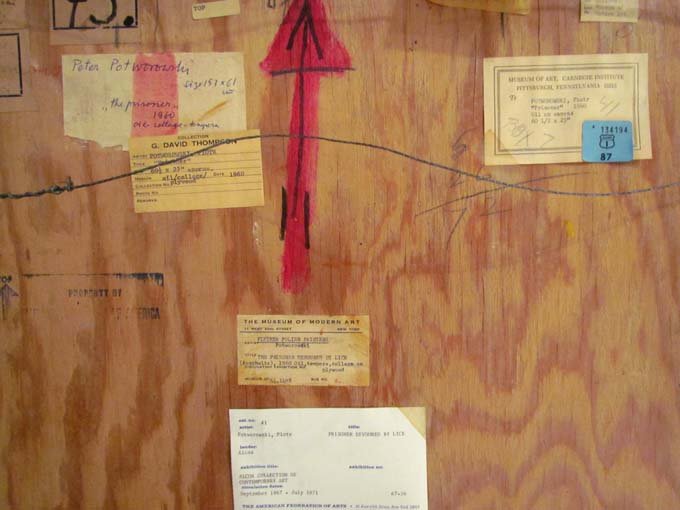 TOP
Peter Potworowski
size 157 x 61
cm
"the prisoner"
1960
oil-collage-tempera
COLLECTION
G. DAVID THOMPSON
ARTIST POTWOROWSKI, PIOTR
TITLE
SIZE 60½ x 23"
MEDIUM oil/collage/ DATE 1960
COLLECTION NO. plywood
PHOTO NO.
REMARKS
MUSEUM OF ART, CARNEGIE INSTITUTE
PITTSBURGH, PENNSYLVANIA
POTWOROWSKI, Piotr
"Prisoner" 1960
Oil on canvas
60 1/2 x 23"
134194
1
87
PROPERTY BY
OF AMERICA
THE MUSEUM OF MODERN ART
11 WEST 53RD STREET NEW YORK
FIFTEEN POLISH PAINTERS
Potworowski
TITLE THE PRISONER DEVOURED BY LICE
(Auschwitz), 1960 Oil, tempera, collage on
plywood
cat.no. 41
artist: title:
Potworowski, Piotr PRISONER DEVOURED BY LICE
lender:
Alcoa
exhibition title: exhibition no:
ALCOA COLLECTION OF
CONTEMPORARY ART
circulation dates:
September 1967 - July 1971 67-26
THE AMERICAN FEDERATION OF ARTS